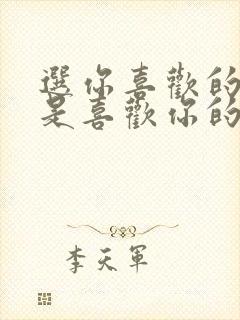 選你喜歡的
是喜歡你的
李天軍